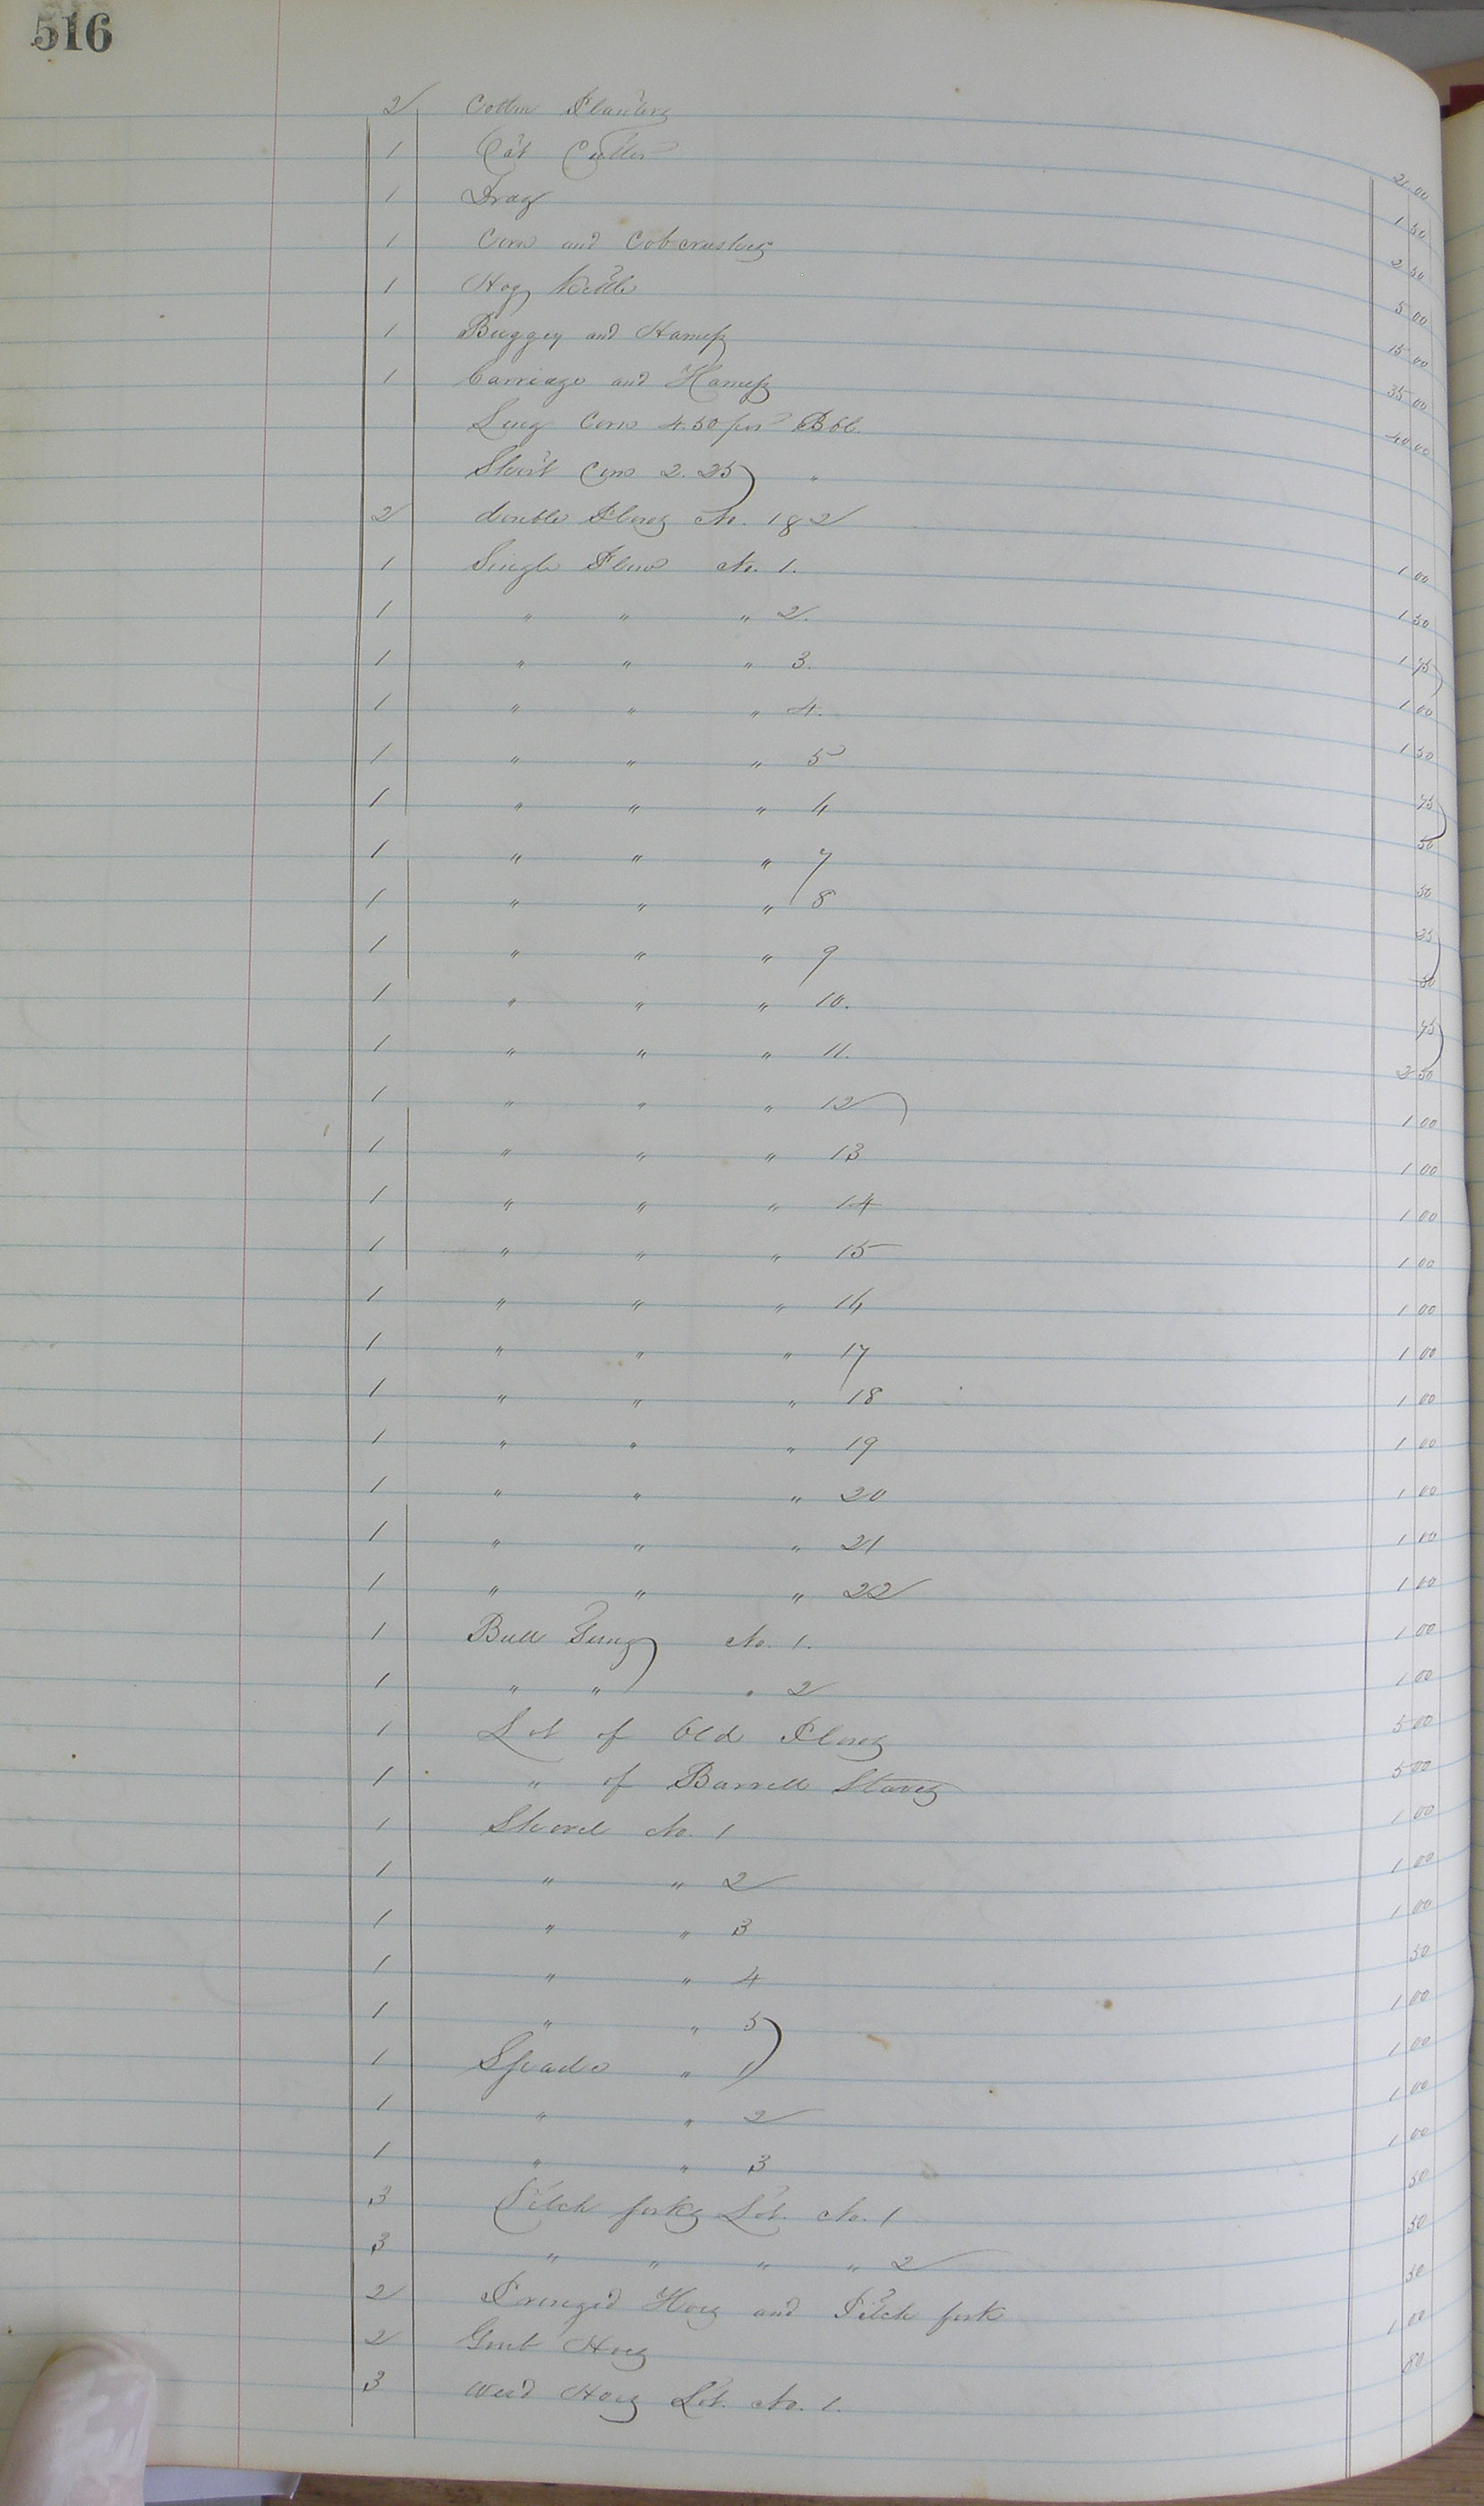 516
2 Cotton Planters 2 00
1 Oat Cutter 1 50
1 Drag 2 50
1 Corn and Cob crusher 5 00
1 Hog Kettle 15 00
1 Buggey and Harness 35 00
1 Carriage and Harness 40 00
Long Corn 4.50 per Bbl.
Short Corn 2.25 "
2 double Plows No. 1 & 2 1 00
1 Single Plow No. 1. 1 50
1 " " " 2. 1 75
1 " " " 3. 1 00
1 " " " 4. 1 50
1 " " " 5 75
1 " " " 6 50
1 " " " 7 50
1 " " " 8 25
1 " " " 9 50
1 " " " 10. 75
1 " " " 11. 2 50
1 " " " 12 1 00
1 " " " 13 1 00
1 " " " 14 1 00
1 " " " 15 1 00
1 " " " 16 1 00
1 " " " 17 1 00
1 " " " 18 1 00
1 " " " 19 1 00
1 " " " 20 1 00
1 " " " 21 1 00
1 " " " 22 1 00
1 Bull Tung No. 1. 1 00
1 " " " 2 1 00
1 Lot of Old Plows 5 00
1 " of Barrell Staves 5 00
1 Shovel No. 1 1 00
1 " " 2 1 00
1 " " 3 1 00
1 " " 4 50
1 " " 5 1 00
1 Spade " 1 1 00
1 " " 2 1 00
1 " " 3 1 00
3 Pitch forks Lot. No. 1 50
3 " " " " 2 50
2 Pronged Hoes and Pitch fork 50
2 Grub Hoes 1 00
3 Weed Hoes Lot. No. 1. 80